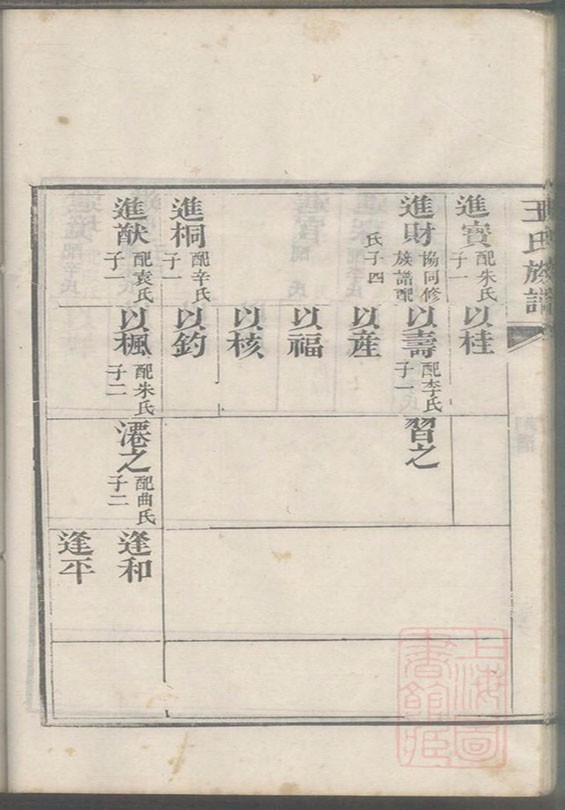 王氏族譜
進實 配朱氏 子一
以桂
進財 協同修族譜配
氏子四
以壽 配李氏 子一
習之
以産
以福
以核
進桐 配辛氏 子一
以釣
進猷 配袁氏 子一
以楓 配朱氏 子二
遷之 配曲氏 子二
逢和
逢平
上海圖書館藏